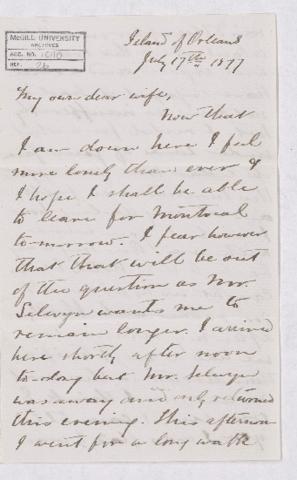 McGILL UNIVERSITY
ARCHIVES
ACC. NO.
REF. 26
Island of Orleans
July 17th 1877
My own dear wife,
Now that
I am down here I feel
more lonely than ever &
I hope I shall be able
to leave for Montreal
to-morrow. I fear however
that that will be out
of the question as Mr.
Selwyn wants me to
remain longer. I arrived
here shortly after noon
to-day but Mr. Selwyn
was away and only returned
this evening. This afternoon
I went for a long walk